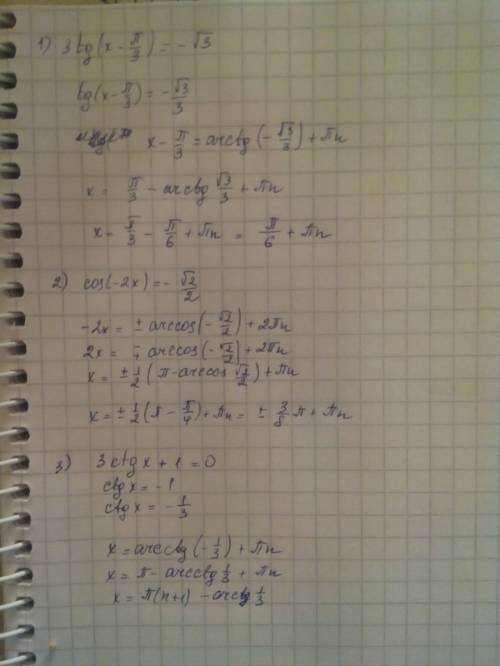 1) 3 tg(x - π/3) = - √3
tg(x - π/3) = - √3/3
x - π/3 = arctg(- √3/3) + πn
x = π/3 - arctg √3/3 + πn
x = π/3 - π/6 + πn = π/6 + πn
2) cos(-2x) = - √2/2
-2x = ± arccos(- √2/2) + 2πn
2x = ∓ arccos(- √2/2) + 2πn
x = ± 1/2 (π - arccos √2/2) + πn
x = ± 1/2 (π - π/4) + πn = ± 3/8 π + πn
3) 3 ctg x + 1 = 0
ctg x = - 1
ctg x = - 1/3
x = arcctg(- 1/3) + πn
x = π - arcctg 1/3 + πn
x = π(n+1) - arcctg 1/3